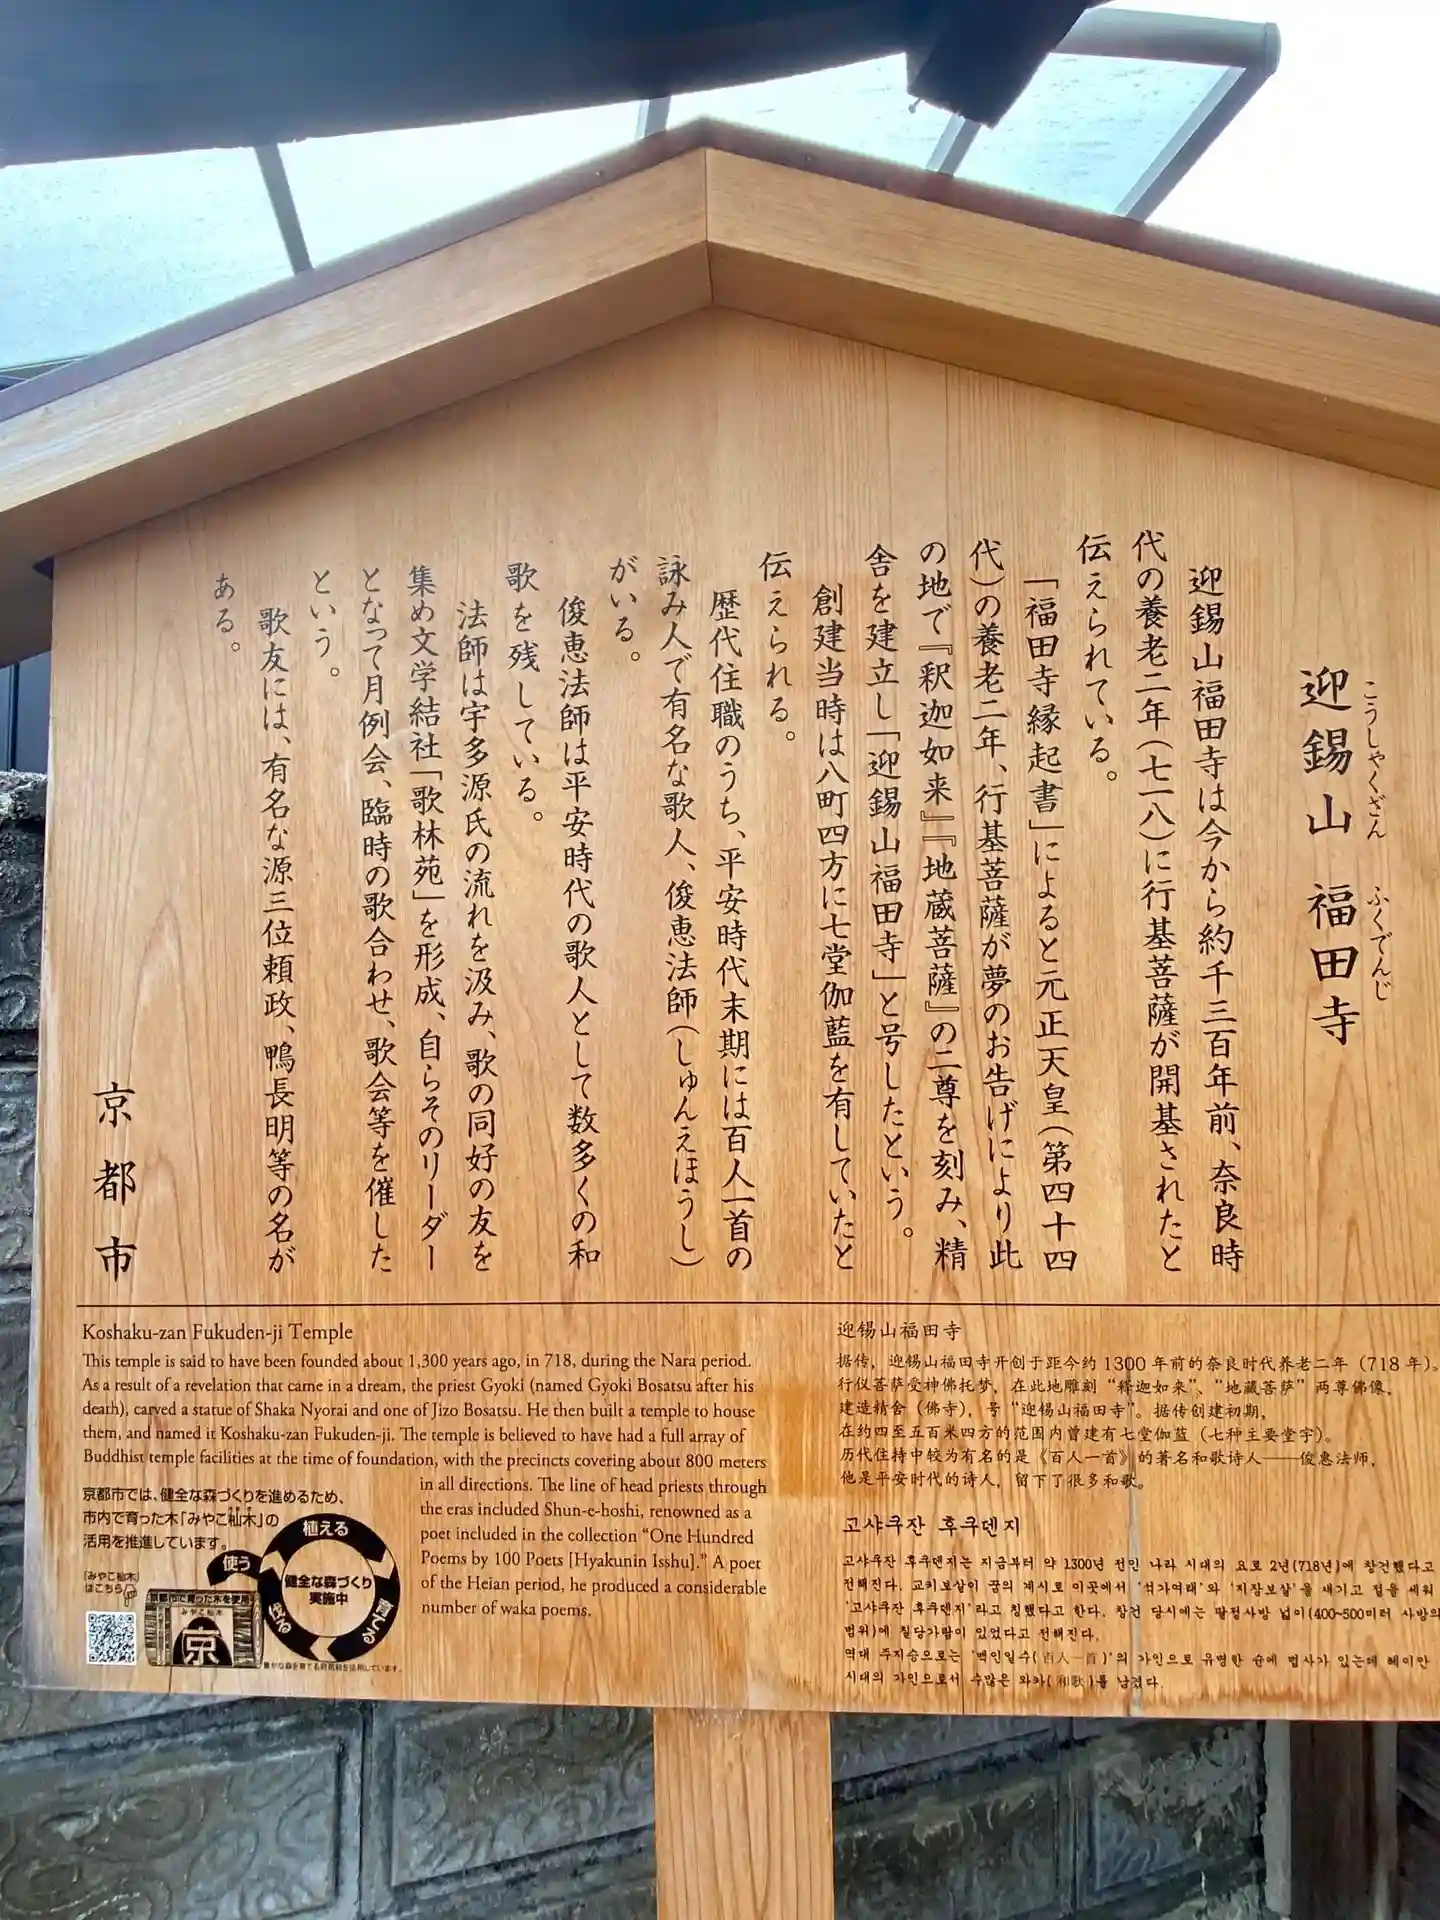 迎錫山 福田寺
こうしゃくざん ふくでんじ
迎錫山福田寺は今から約千三百年前、奈良時
代の養老二年(七一八)に行基菩薩が開基されたと
伝えられている。
「福田寺縁起書」によると元正天皇(第四十四
代)の養老二年、行基菩薩が夢のお告げにより此
の地で『釈迦如来』『地蔵菩薩』の二尊を刻み、精
舎を建立し「迎錫山福田寺」と号したという。
創建当時は八町四方に七堂伽藍を有していたと
伝えられる。
歴代住職のうち、平安時代末期には百人一首の
詠み人で有名な歌人、俊恵法師(しゅんえほうし)
がいる。
俊恵法師は平安時代の歌人として数多くの和
歌を残している。
法師は宇多源氏の流れを汲み、歌の同好の友を
集め文学結社「歌林苑」を形成、自らそのリーダー
となって月例会、臨時の歌合わせ、歌会等を催した
という。
歌友には、有名な源三位頼政、鴨長明等の名が
ある。
京都市
Koshaku-zan Fukuden-ji Temple
This temple is said to have been founded about 1,300 years ago, in 718, during the Nara period.
As a result of a revelation that came in a dream, the priest Gyoki (named Gyoki Bosatsu after his
death), carved a statue of Shaka Nyorai and one of Jizo Bosatsu. He then built a temple to house
them, and named it Koshaku-zan Fukuden-ji. The temple is believed to have had a full array of
Buddhist temple facilities at the time of foundation, with the precincts covering about 800 meters
in all directions. The line of head priests through
the eras included Shun-e-hoshi, renowned as a
poet included in the collection “One Hundred
Poems by 100 Poets [Hyakunin Isshu].” A poet
of the Heian period, he produced a considerable
number of waka poems.
京都市では、健全な森づくりを進めるため、
市内で育った木「みやこ杣木」の
活用を推進しています。
「みやこ杣木」
はこちら
京都市内で育った木を使用
みやこ杣木
京
植える
育てる
伐る
使う
健全な森づくり
実施中
迎锡山福田寺
据传，迎锡山福田寺开创于距今约1300年前的奈良时代养老二年（718年）。
行仪菩萨受神佛托梦，在此地雕刻“释迦如来”、“地藏菩萨”两尊佛像，
建造精舍（佛寺），号“迎锡山福田寺”。据传创建初期，
在约四至五百米四方的范围内曾建有七堂伽蓝（七种主要堂宇）。
历代住持中较为有名的是《百人一首》的著名和歌诗人——俊惠法师，
他是平安时代的诗人，留下了很多和歌。
고샤쿠잔 후쿠덴지
고샤쿠잔 후쿠덴지는 지금부터 약 1300년 전인 나라 시대의 요로 2년(718년)에 창건했다고
전해진다. 교키보살이 꿈의 계시로 이곳에서 '석가여래'와 '지장보살'을 새기고 절을 세워
'고샤쿠잔 후쿠덴지'라고 칭했다고 한다. 창건 당시에는 팔정사방 넓이(400~500미터 사방의
범위)에 칠당가람이 있었다고 전해진다.
역대 주지승으로는 '백인일수(百人一首)'의 가인으로 유명한 슌에 법사가 있는데 헤이안
시대의 가인으로서 수많은 와카(和歌)를 남겼다.